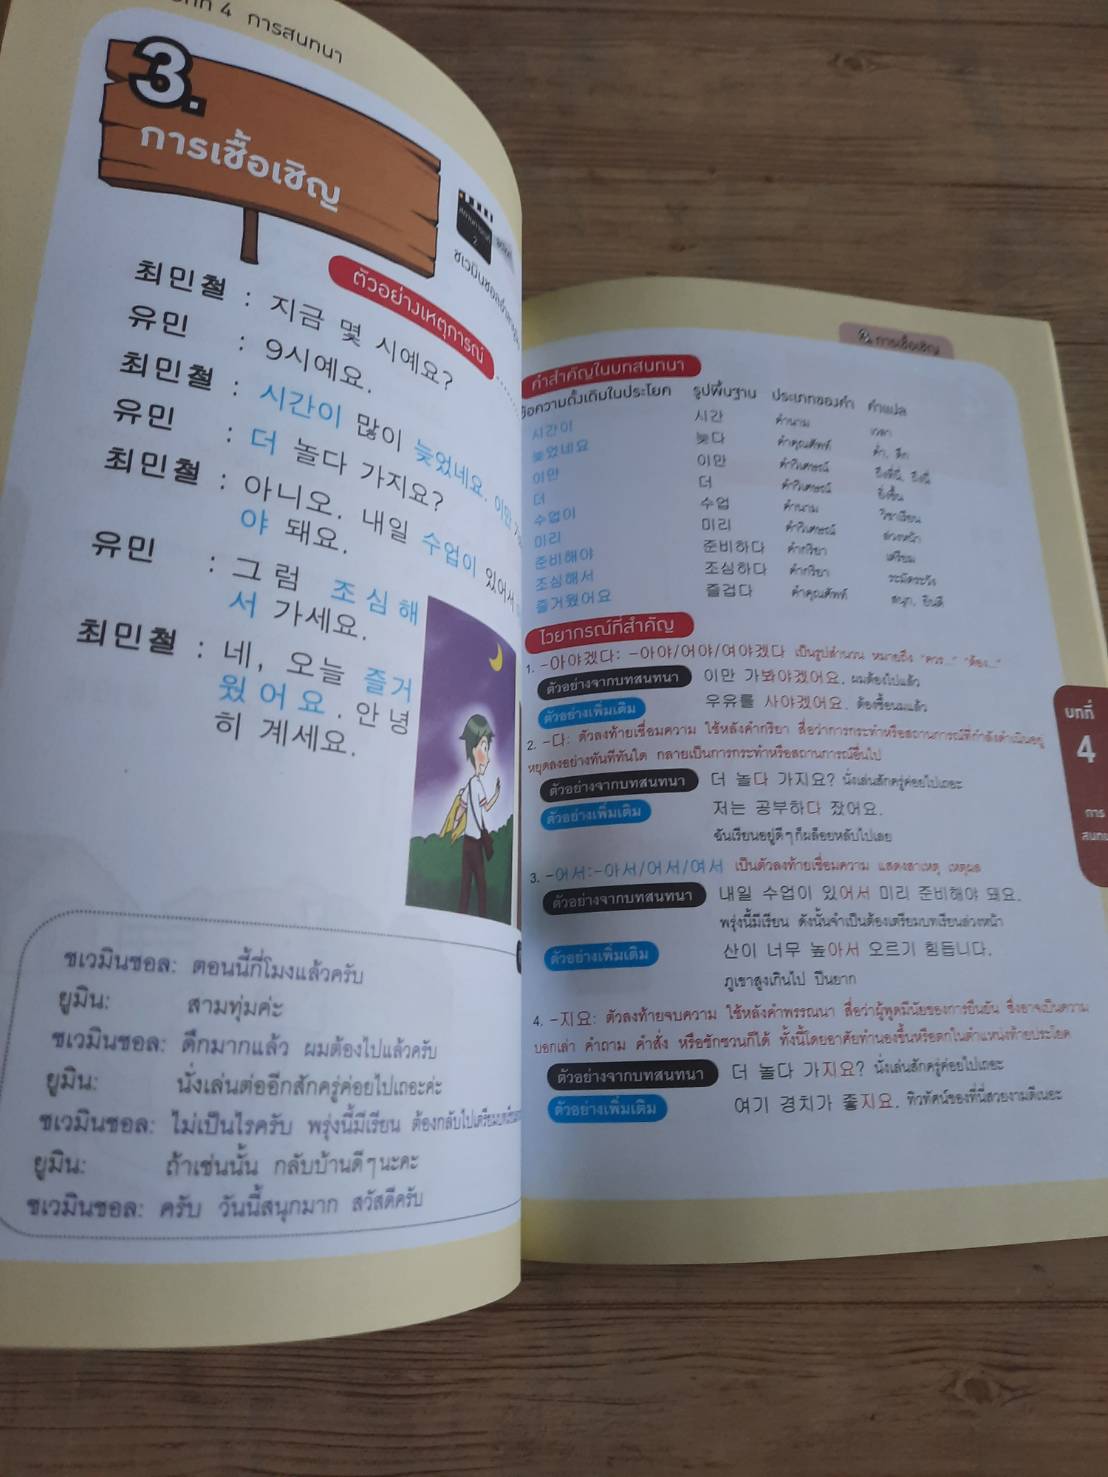 4 การสนทนา
3.
การเชื้อเชิญ
ตัวอย่างเหตุการณ์
최민철 : 지금 몇 시예요?
유민 : 9시예요.
최민철 : 시간이 많이 늦었네요. 이만
유민 : 더 놀다 가지요?
최민철 : 아니오. 내일 수업이 있어서
야 돼요.
유민 : 그럼 조심해
서 가세요.
최민철 : 네, 오늘 즐거
웠어요. 안녕
히 계세요.
ชเวมินชอล: ตอนนี้กี่โมงแล้วครับ
ยูมิน: สามทุ่มค่ะ
ชเวมินชอล: ดึกมากแล้ว ผมต้องไปแล้วครับ
ยูมิน: นั่งเล่นต่ออีกสักครู่ค่อยไปเถอะค่ะ
ชเวมินชอล: ไม่เป็นไรครับ พรุ่งนี้มีเรียน
ยูมิน: ถ้าเช่นนั้น กลับบ้านดีๆนะคะ
ชเวมินชอล: ครับ วันนี้สนุกมาก สวัสดีครับ
3. การเชื้อเชิญ
คำสำคัญในบทสนทนา
ข้อความดั้งเดิมในประโยค รูปพื้นฐาน ประเภทของคำ คำแปล
시간이 시간 คำนาม เวลา
늦었네요 늦다 คำคุณศัพท์ ค่ำ, ดึก
이만 이만 คำวิเศษณ์ ถึงที่นี่, ถึงนี่
더 더 คำวิเศษณ์ ยิ่งขึ้น
수업이 수업 คำนาม วิชาเรียน
미리 미리 คำวิเศษณ์ ล่วงหน้า
준비해야 준비하다 คำกริยา เตรียม
조심해서 조심하다 คำกริยา ระมัดระวัง
즐거웠어요 즐겁다 คำคุณศัพท์ สนุก, ยินดี
ไวยากรณ์ที่สำคัญ
1. -아야겠다: -아야/어야/여야겠다 เป็นรูปสำนวน หมายถึง "ควร..." "ต้อง..."
ตัวอย่างจากบทสนทนา 이만 가봐야겠어요. ผมต้องไปแล้ว
ตัวอย่างเพิ่มเติม 우유를 사야겠어요. ต้องซื้อนมแล้ว
2. -다: ตัวลงท้ายเชื่อมความ ใช้หลังคำกริยา สื่อว่าการกระทำหรือสถานการณ์ที่กำลังดำเนินอยู่
หยุดลงอย่างทันทีทันใด กลายเป็นการกระทำหรือสถานการณ์อื่นไป
ตัวอย่างจากบทสนทนา 더 놀다 가지요? นั่งเล่นสักครู่ค่อยไปเถอะ
ตัวอย่างเพิ่มเติม 저는 공부하다 잤어요.
ฉันเรียนอยู่ดีๆก็ผล็อยหลับไปเลย
3. -어서:-아서/어서/여서 เป็นตัวลงท้ายเชื่อมความ แสดงสาเหตุ เหตุผล
ตัวอย่างจากบทสนทนา 내일 수업이 있어서 미리 준비해야 돼요.
พรุ่งนี้มีเรียน ดังนั้นจำเป็นต้องเตรียมบทเรียนล่วงหน้า
ตัวอย่างเพิ่มเติม 산이 너무 높아서 오르기 힘듭니다.
ภูเขาสูงเกินไป ปีนยาก
4. -지요: ตัวลงท้ายจบความ ใช้หลังคำพรรณนา สื่อว่าผู้พูดมีนัยของการยืนยัน ซึ่งอาจเป็นความ
บอกเล่า คำถาม คำสั่ง หรือชักชวนก็ได้ ทั้งนี้โดยอาศัยทำนองขึ้นหรือตกในตำแหน่งท้ายประโยค
ตัวอย่างจากบทสนทนา 더 놀다 가지요? นั่งเล่นสักครู่ค่อยไปเถอะ
ตัวอย่างเพิ่มเติม 여기 경치가 좋지요. ทิวทัศน์ของที่นี่สวยงามดีเนอะ
บทที่
4
การ